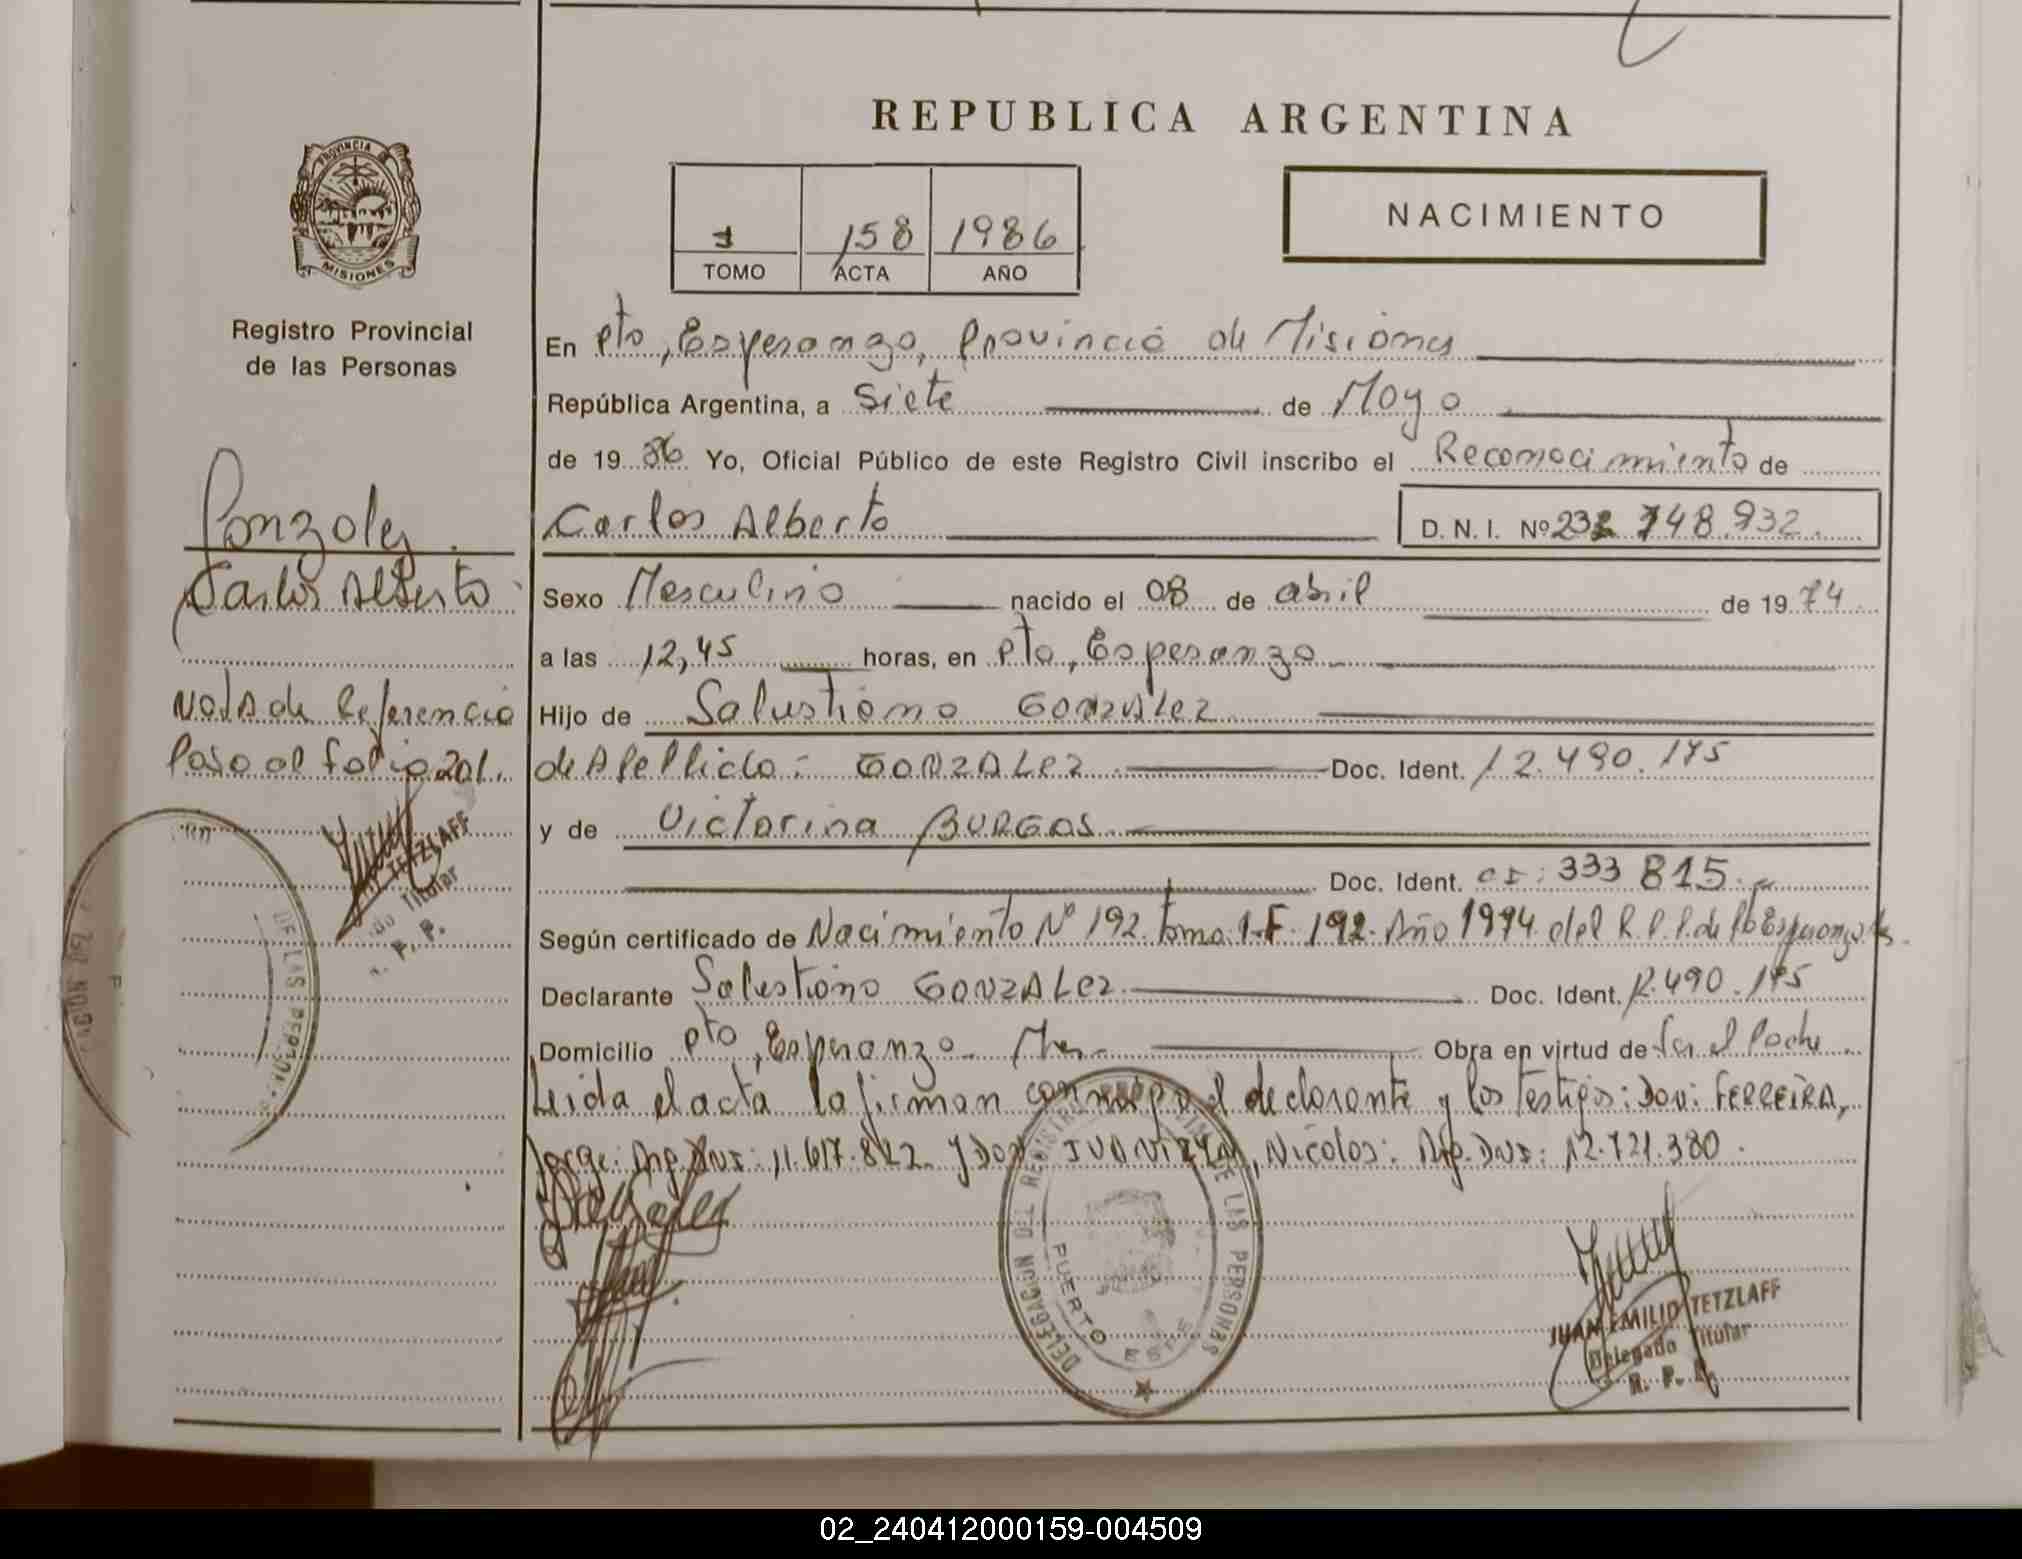 REPUBLICA ARGENTINA
PROVINCIA DE
MISIONES
Registro Provincial
de las Personas
1 158 1986
TOMO ACTA AÑO
NACIMIENTO
En Pto, Esperanza, Provincia de Misiones
República Argentina, a Siete de Mayo
de 19 86 Yo, Oficial Público de este Registro Civil inscribo el Reconocimiento de
Carlos Alberto D. N. I. Nº 748.932.
Sexo Masculino nacido el 08 de abril de 19 74
a las 12,45 horas, en Pto, Esperanza
Hijo de Salustiano GONZALEZ
de Apellido: GONZALEZ Doc. Ident. 12.490.175
y de Victorina BURGOS
Doc. Ident. CI: 333 815.
Según certificado de Nacimiento Nº 192 tomo 1-F. 192. Año 1974 del R.P.P. de Pto Esperanza
Declarante Salustiano GONZALEZ Doc. Ident. 12.490.175
Domicilio Pto, Esperanza Mnes. Obra en virtud de Ser el Padre
Leida el acta la firman conmigo el declarante y los testigos: Don: FERREIRA,
Jorge: Arg. DNI: 11.617.822 y Don Nicolas: Arg. DNI: 12.721.380.
Gonzalez
Carlos Alberto
Nota de Referencia
Paso al folio 201.
TETZLAFF
Titular
R. P. P.
DE LAS PERSONAS
DELEGACION DEL REGISTRO PROVINCIAL DE LAS PERSONAS
PUERTO ESPE
JUAN EMILIO TETZLAFF
Delegado Titular
R. P. P.
02_240412000159-004509